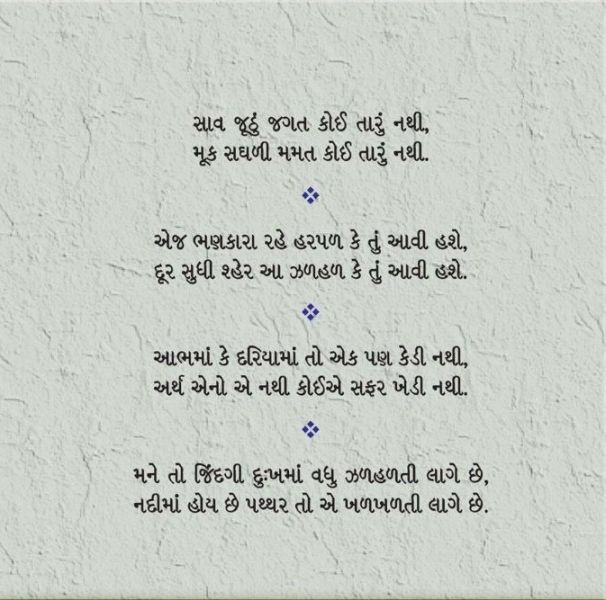 સાવ જૂઠું જગત કોઈ તારું નથી,
મૂક સઘળી મમત કોઈ તારું નથી.
એજ ભણકારા રહે હરપળ કે તું આવી હશે,
દૂર સુધી શ્હેર આ ઝળહળ કે તું આવી હશે.
આભમાં કે દરિયામાં તો એક પણ કેડી નથી,
અર્થ એનો એ નથી કોઈએ સફર ખેડી નથી.
મને તો જિંદગી દુઃખમાં વધુ ઝળહળતી લાગે છે,
નદીમાં હોય છે પથ્થર તો એ ખળખળતી લાગે છે.